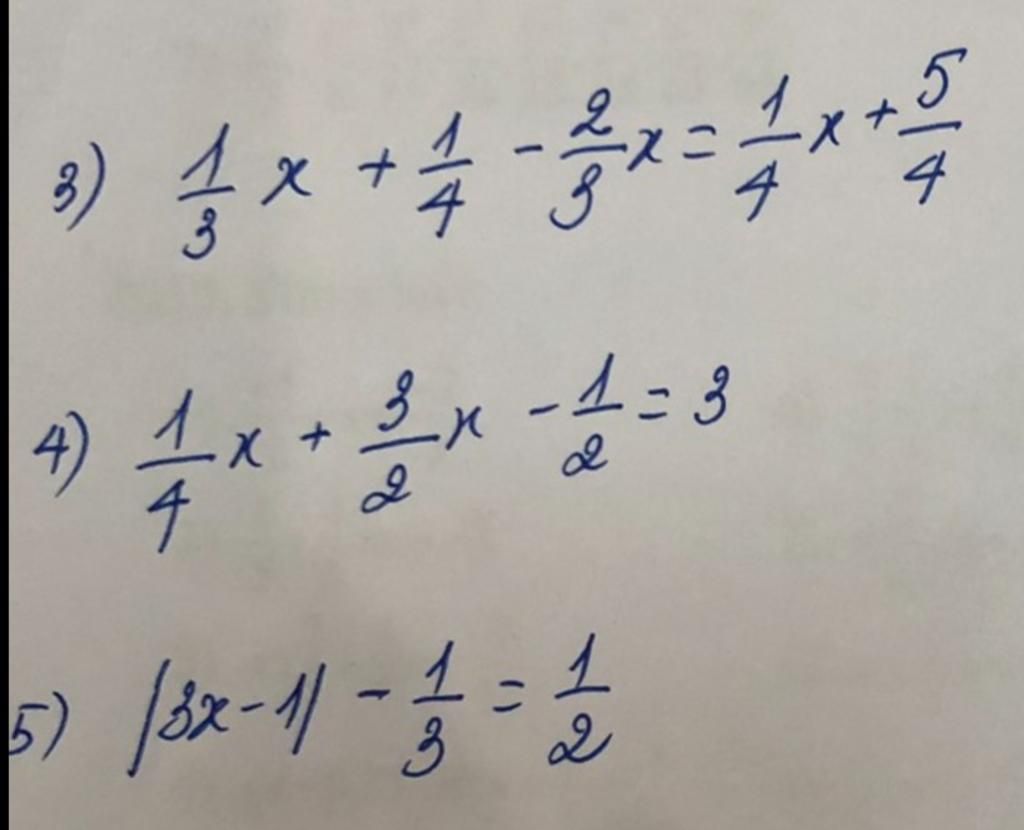 3) 1/3 x + 1/4 - 2/3 x = 1/4 x + 5/4
4) 1/4 x + 3/2 x - 1/2 = 3
5) |3x-1| - 1/3 = 1/2